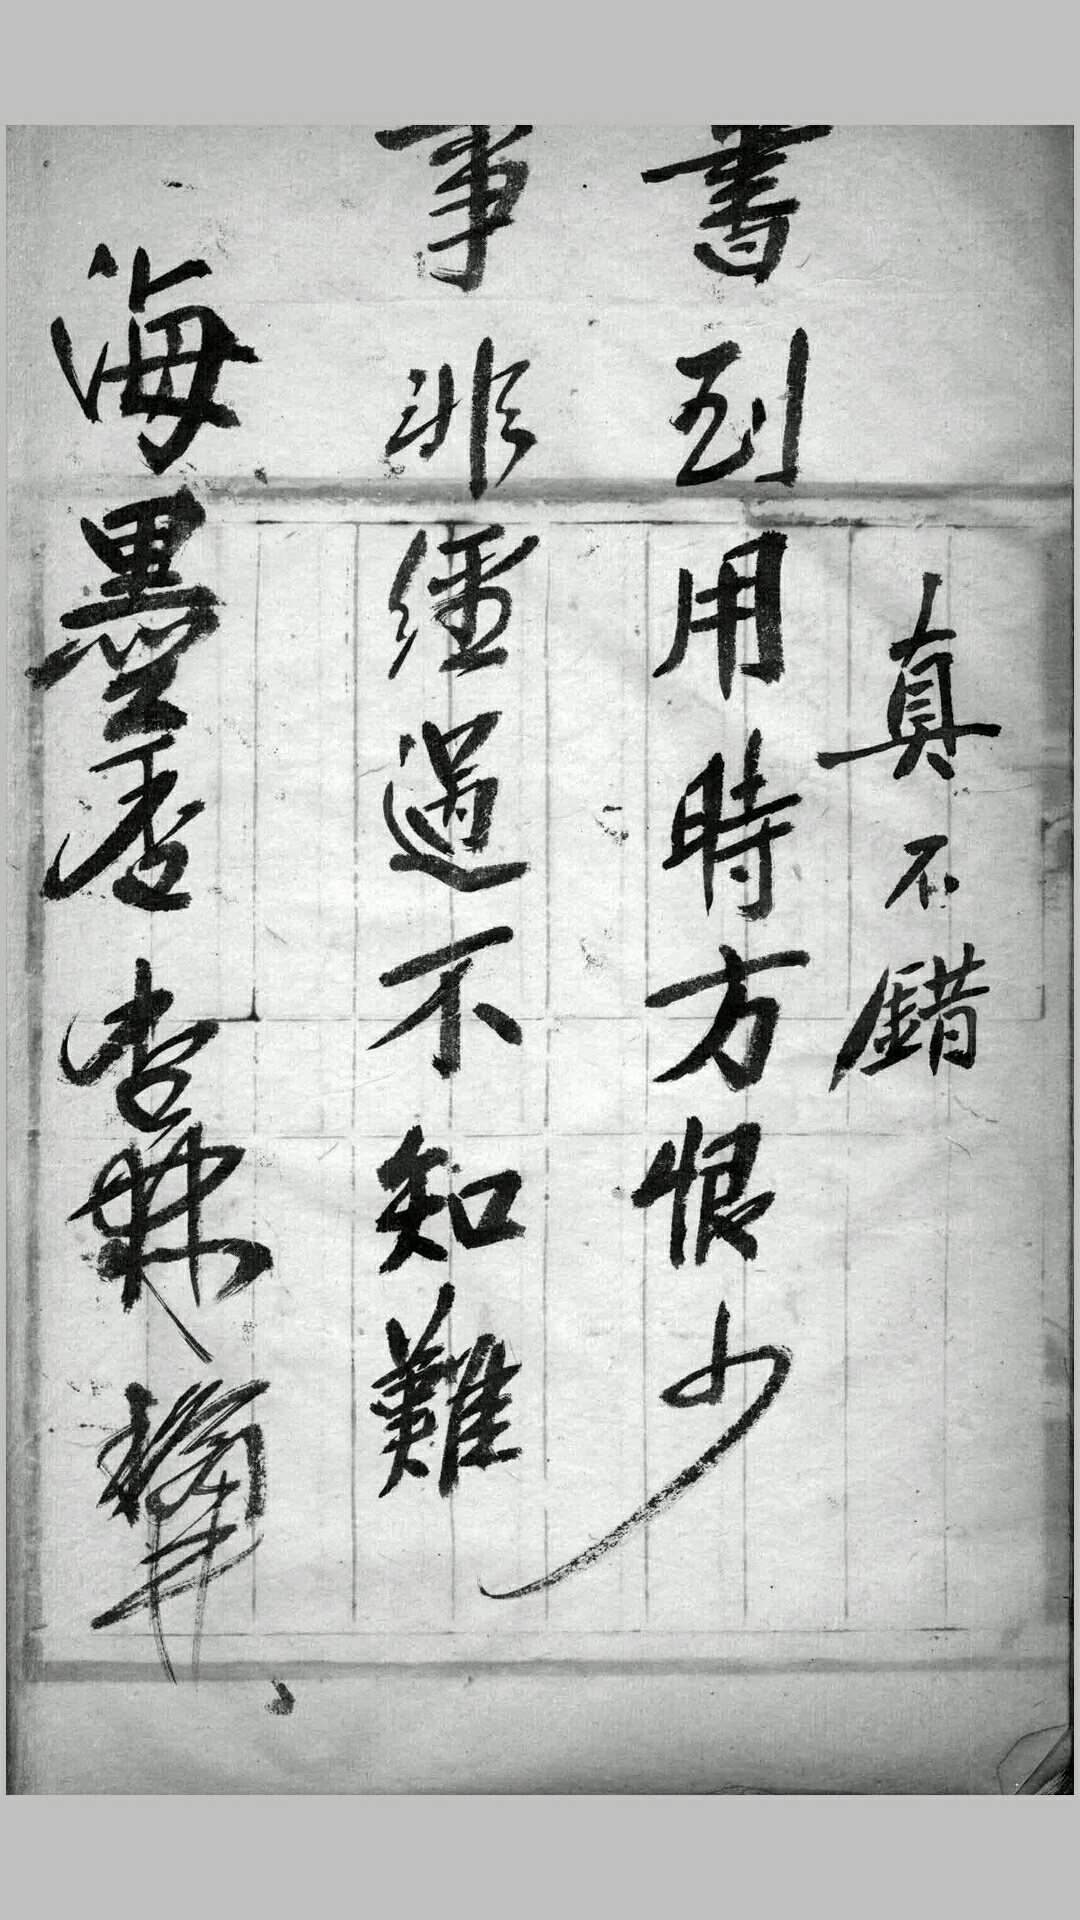 真不錯
書到用時方恨少
事非經過不知難
海墨香